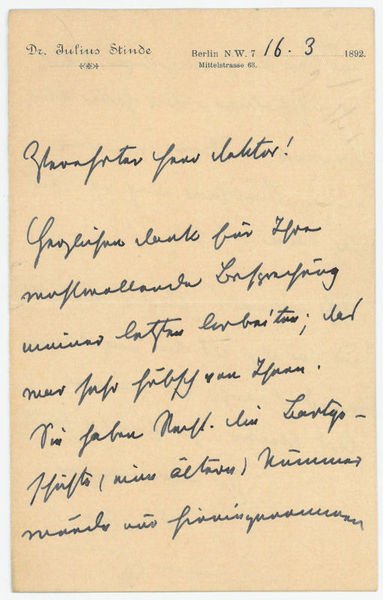 Dr. Julius Stinde
Berlin N.W. 7 16. 3 1892.
Mittelstrasse 63.
Verehrter Herr Doktor!
Herzlichen Dank für Ihre
wohlwollende Besprechung
meiner letzten Arbeiten; das
war sehr hübsch von Ihnen.
Sie haben Recht. Die Bartge-
schichte (eine ältere) Nummer
wurde nur hineingenommen